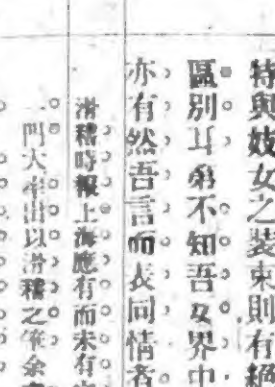 特與妓女之裝束則有絕
區別耳弟不知吾女界中
亦有然吾言而表同情者
滑稽時報上海應有而未有
一門大率出以滑稽之筆余